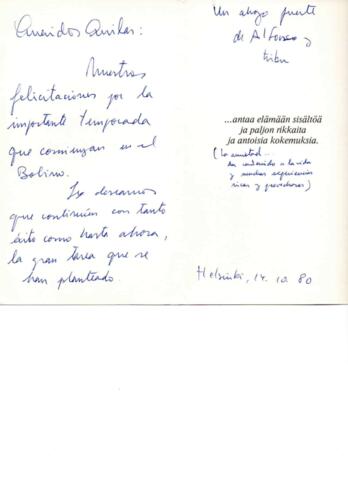 Queridos Quilas:
Nuestras
felicitaciones por la
importante temporada
que comienzan en el
Bolivo.
Les deseamos
que continúen con tanto
éxito como hasta ahora,
la gran tarea que se
han planteado.
Un abrazo fuerte
de Alfonso y
...antaa elämään sisältöä
ja paljon rikkaita
ja antoisia kokemuksia.
(La amistad...
da contenido a la vida
y muchas experiencias
ricas y
Helsinki, 14. 10. 80